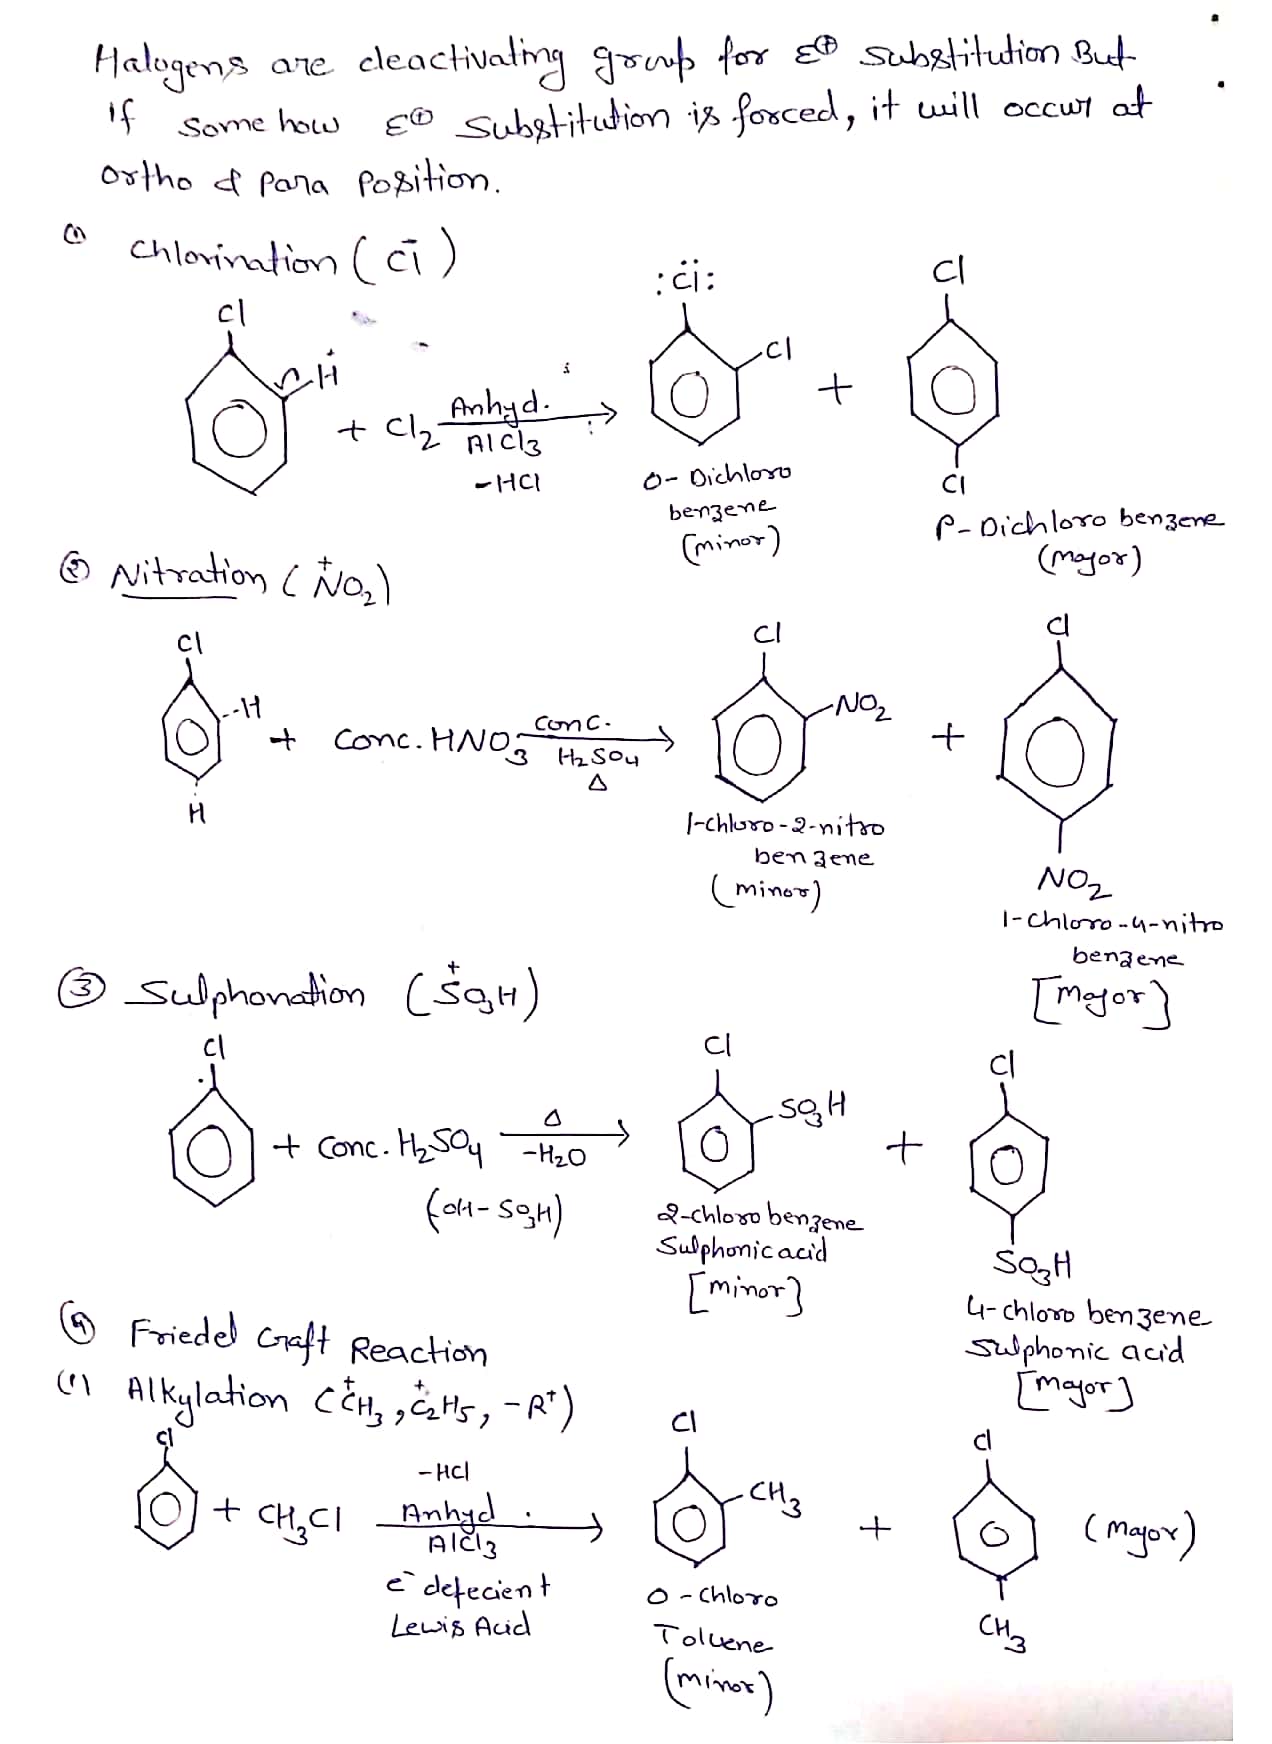 Halogens are deactivating group for E⊕ substitution But
if some how E⊕ substitution is forced, it will occur at
ortho & para position.
(1) Chlorination (Cl̄)
Cl
H
+ Cl2 Anhyd.
AlCl3
-HCl
:C̈l:
Cl
O- Dichloro
benzene
(minor)
+
Cl
Cl
P- Dichloro benzene
(Major)
(2) Nitration (N⁺O2)
Cl
--H
H
+ Conc. HNO3 Conc.
H2SO4
Δ
Cl
NO2
1-chloro-2-nitro
benzene
(minor)
+
Cl
NO2
1-chloro-4-nitro
benzene
[Major]
(3) Sulphonation (S⁺O3H)
Cl
+ Conc. H2SO4 Δ
-H2O
(OH-SO3H)
Cl
SO3H
2-chloro benzene
Sulphonic acid
[minor]
+
Cl
SO3H
4-chloro benzene
Sulphonic acid
[Major]
(4) Friedel Craft Reaction
(i) Alkylation (C⁺H3, C⁺2H5, -R⁺)
Cl
+ CH3Cl
-HCl
Anhyd.
AlCl3
e⁻ defecient
Lewis Acid
Cl
CH3
O-chloro
Toluene
(minor)
+
Cl
CH3
(Major)